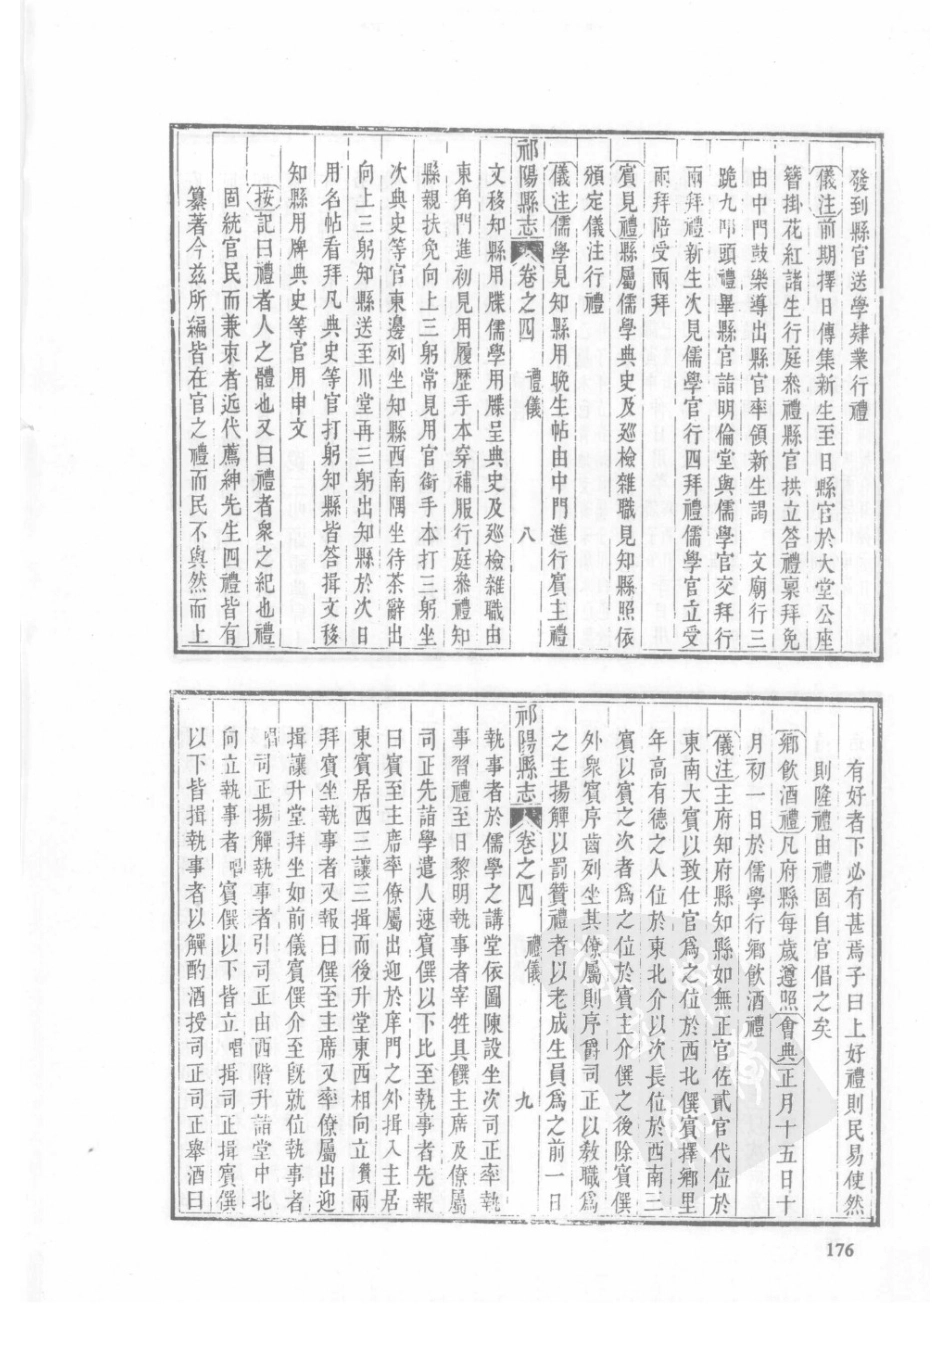 發到縣官送學肄業行禮
儀注前期擇日傳集新生至日縣官於大堂公座
簪掛花紅諸生行庭叅禮縣官拱立答禮稟拜免
由中門鼓樂導出縣官率領新生謁　文廟行三
跪九叩頭禮畢縣官詣明倫堂與儒學官交拜行
兩拜禮新生次見儒學官行四拜禮儒學官立受
兩拜陪受兩拜
賓見禮縣屬儒學典史及廵檢雜職見知縣照依
頒定儀注行禮
儀注儒學見知縣用晚生帖由中門進行賓主禮
祁陽縣志　卷之四　禮儀　八
文移知縣用牒儒學用牒呈典史及廵檢雜職由
東角門進初見用履歷手本穿補服行庭叅禮知
縣親扶免向上三躬常見用官銜手本打三躬坐
次典史等官東邊列坐知縣西南隅坐待茶辭出
向上三躬知縣送至川堂再三躬出知縣於次日
用名帖看拜凡典史等官打躬知縣皆答揖文移
知縣用牌典史等官用申文
按記曰禮者人之體也又曰禮者衆之紀也禮
固統官民而兼朿者近代薦紳先生四禮皆有
纂著今兹所編皆在官之禮而民不與然而上
有好者下必有甚焉子曰上好禮則民易使然
則隆禮由禮固自官倡之矣
鄉飲酒禮凡府縣每歲遵照會典正月十五日十
月初一日於儒學行鄉飲酒禮
儀注主府知府縣知縣如無正官佐貳官代位於
東南大賓以致仕官爲之位於西北僎賓擇鄉里
年高有德之人位於東北介以次長位於西南三
賓以賓之次者爲之位於賓主介僎之後除賓僎
外衆賓序齒列坐其僚屬則序爵司正以敎職爲
之主揚觶以罰贊禮者以老成生員爲之前一日
祁陽縣志　卷之四　禮儀　九
執事者於儒學之講堂依圖陳設坐次司正率執
事習禮至日黎明執事者宰牲具饌主席及僚屬
司正先詣學遣人速賓僎以下比至執事者先報
曰賓至主席率僚屬出迎於庠門之外揖入主居
東賓居西三讓三揖而後升堂東西相向立贊兩
拜賓坐執事者又報曰僎至主席又率僚屬出迎
揖讓升堂拜坐如前儀賓僎介至旣就位執事者
唱司正揚觶執事者引司正由西階升詣堂中北
向立執事者唱賓僎以下皆立唱揖司正揖賓僎
以下皆揖執事者以觶酌酒授司正司正舉酒曰
176